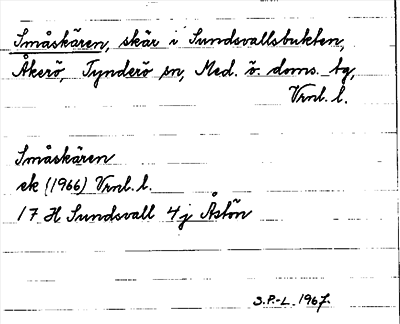 Småskären, skär i Sundsvallsbukten,
Åkerö, Tynderö sn, Med. ö. doms. tg,
Vrnl. l.
Småskären
ek (1966) Vrnl. l.
17 H Sundsvall 4j Åstön
S.P.-L. 1967.